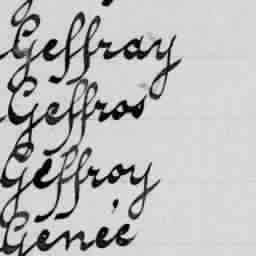 Geffray
Geffros
Geffroy
Genée